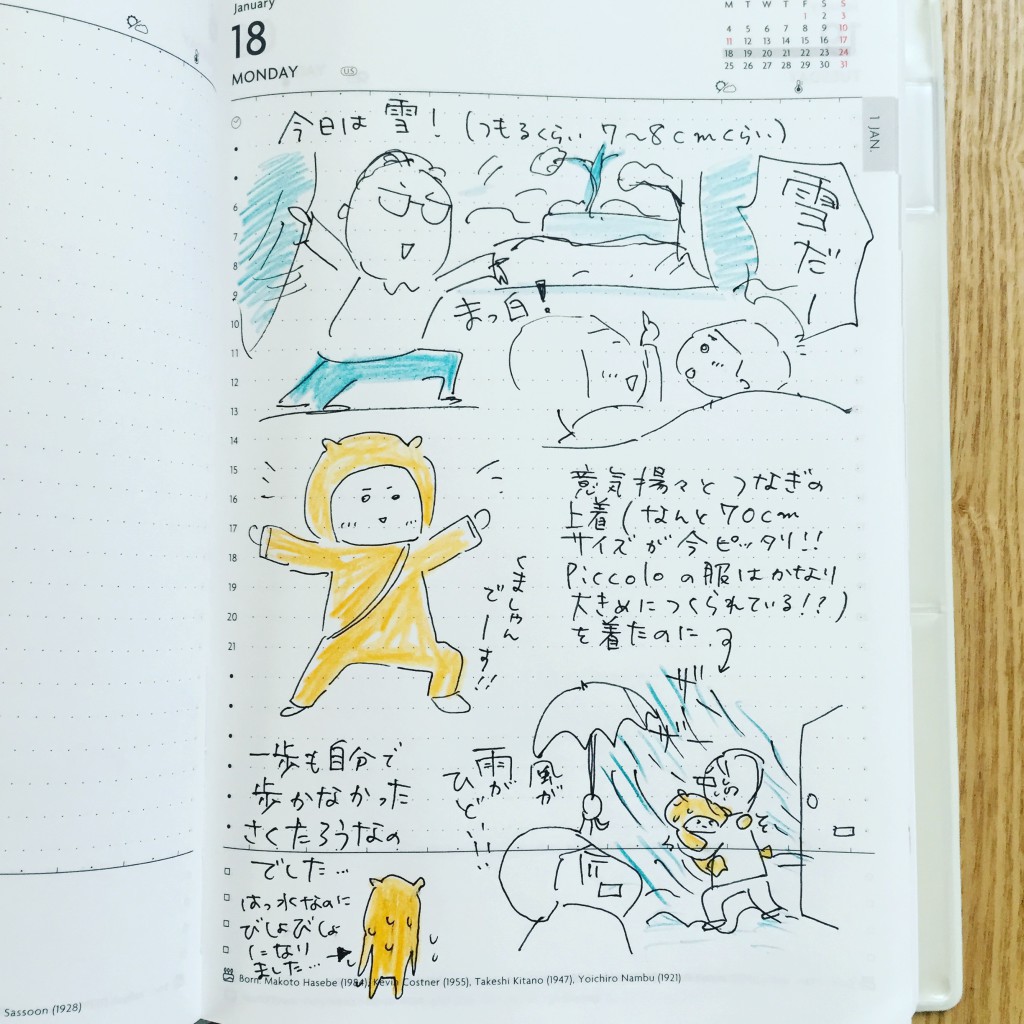 January
18
MONDAY
US
M T W T F S S
1 2 3
4 5 6 7 8 9 10
11 12 13 14 15 16 17
18 19 20 21 22 23 24
25 26 27 28 29 30 31
1 JAN.
今日は雪！（つもるくらい 7〜8cmくらい）
雪だー
まっ白！
6
7
8
9
10
11
12
13
14
15
16
17
18
19
20
21
意気揚々とつなぎの
上着（なんと70cm
サイズが今ピッタリ!!
Piccoloの服はかなり
大きめにつくられている!?）
を着たのに
くましゃん
でーす!!
ザー
ザー
風が
雨が
ひど…!!
そ〜
一歩も自分で
歩かなかった
さくたろうなの
でした…
はっ水なのに
びしょびしょ
になり
ました…
Born: Makoto Hasebe (1984), Kevin Costner (1955), Takeshi Kitano (1947), Yoichiro Nambu (1921)
Sassoon (1928)